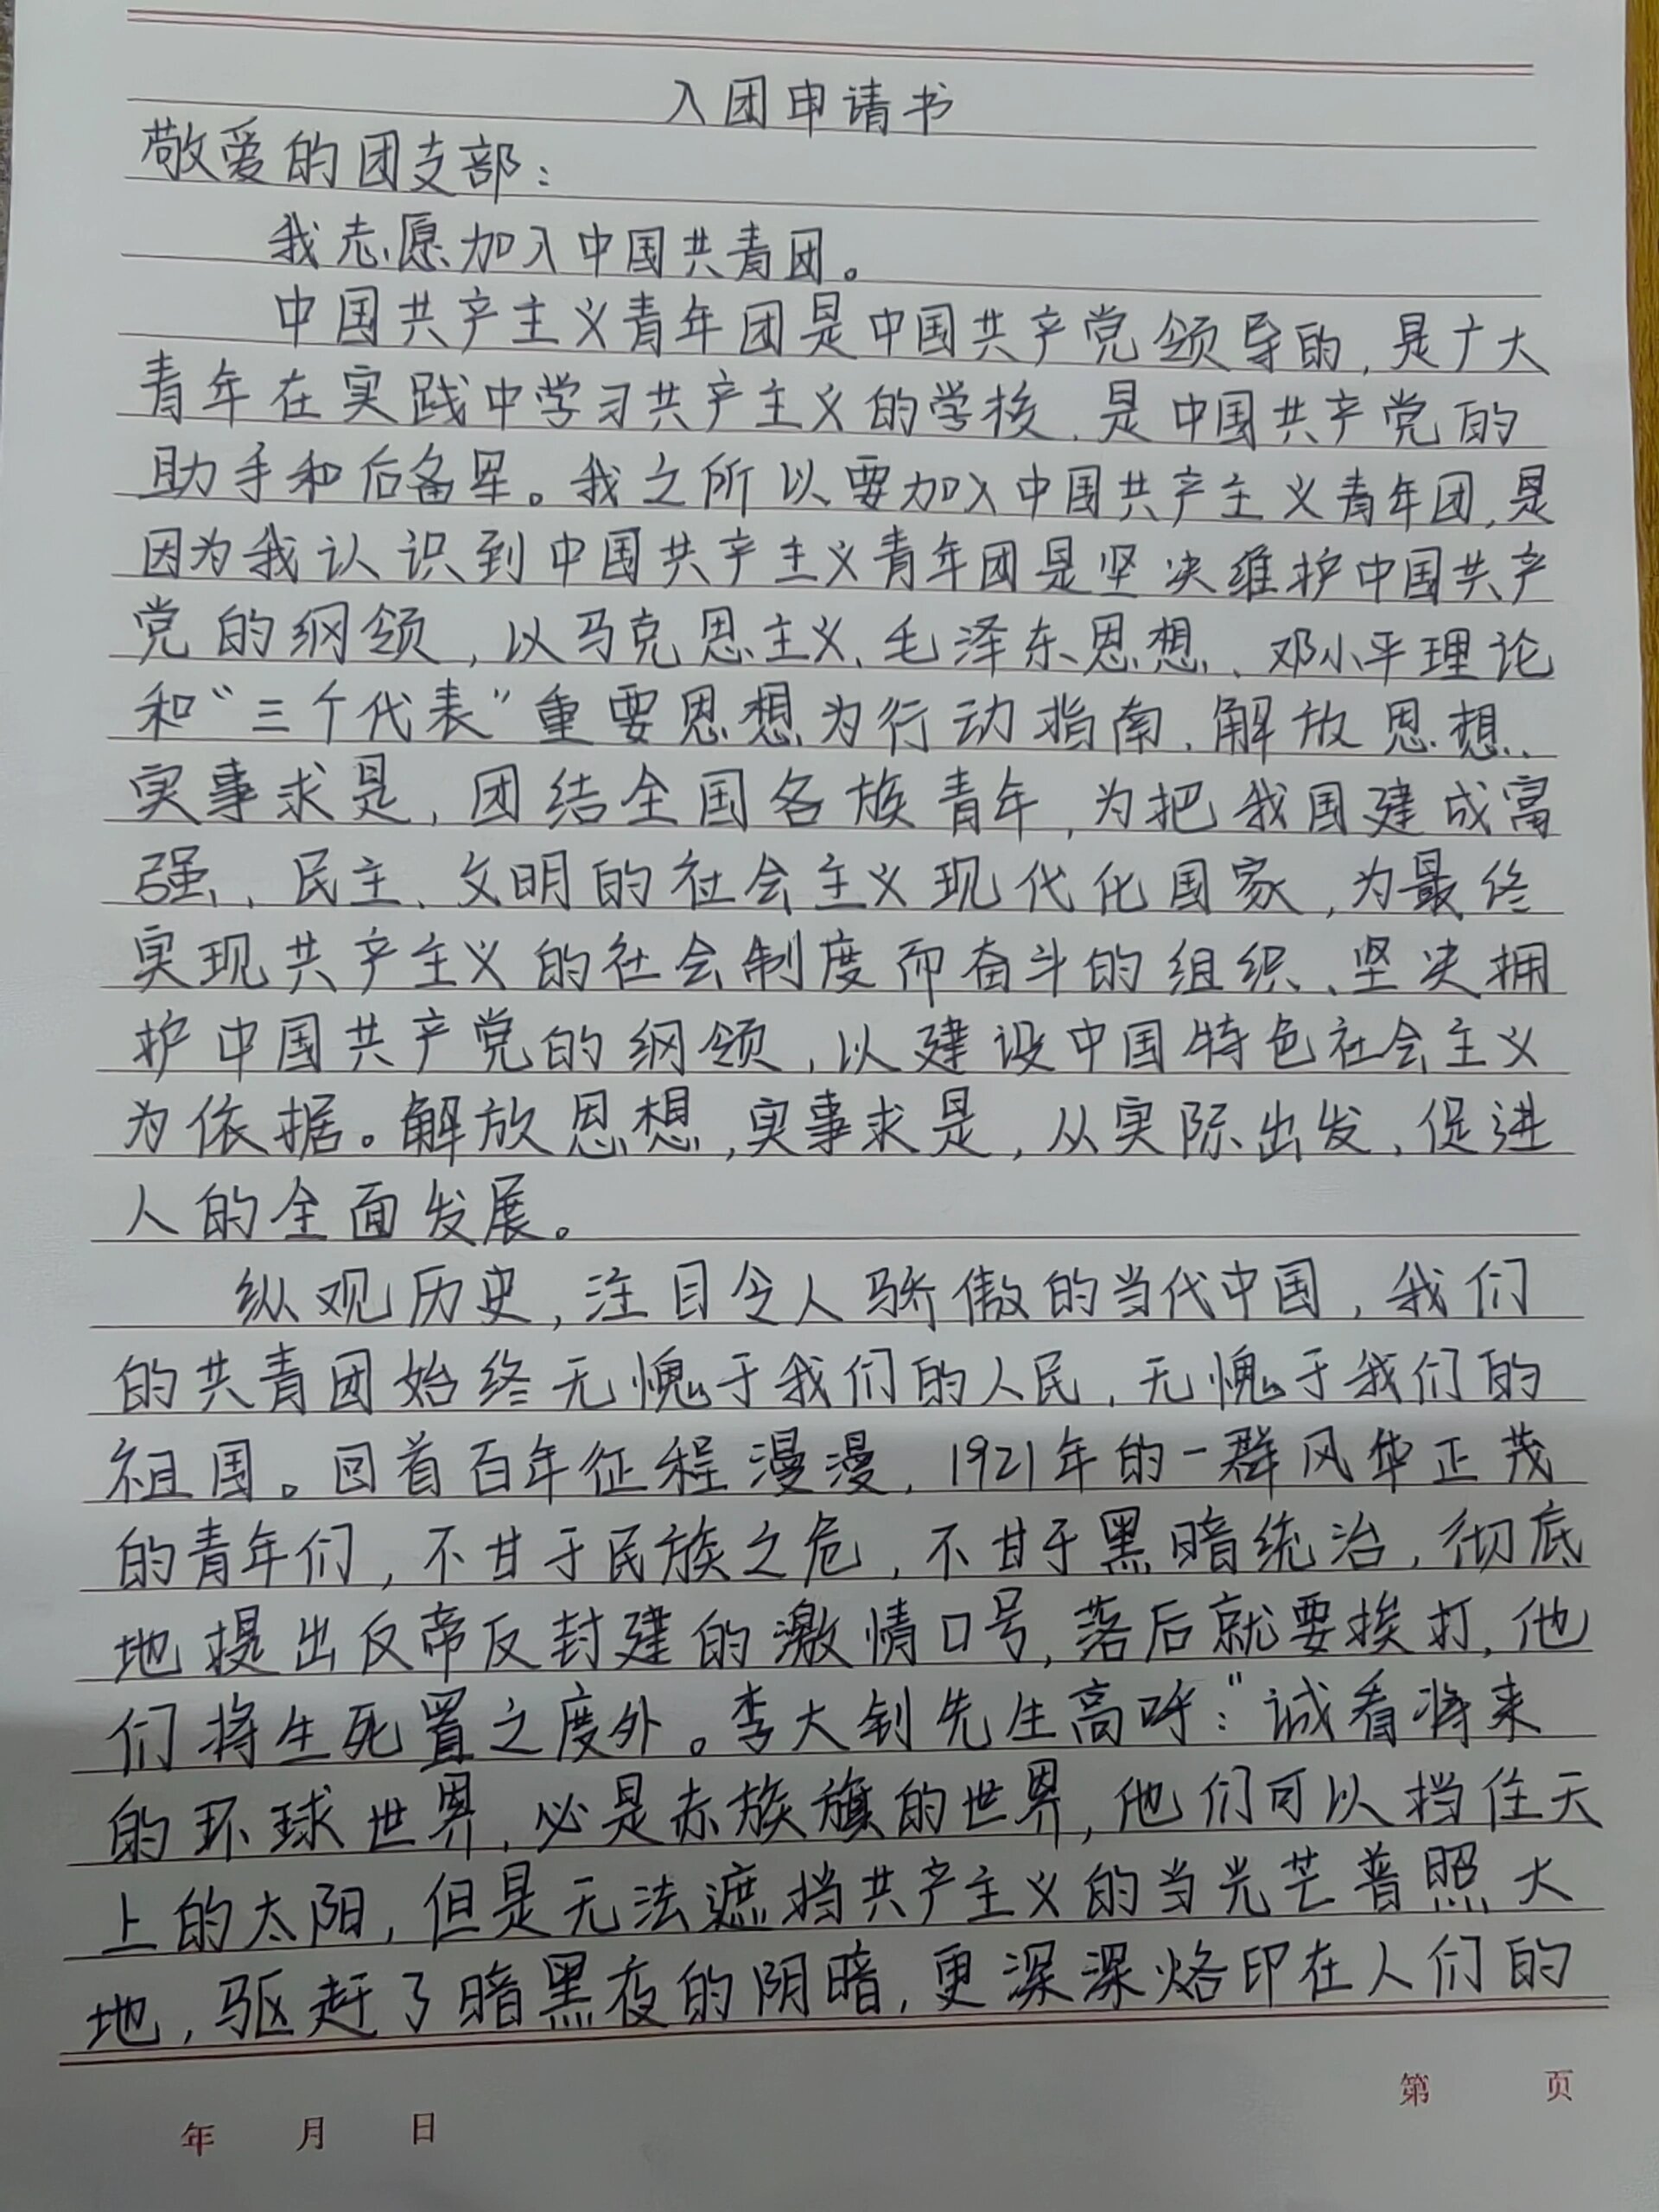 入团申请书
敬爱的团支部：
我志愿加入中国共青团。
中国共产主义青年团是中国共产党领导的，是广大
青年在实践中学习共产主义的学校，是中国共产党的
助手和后备军。我之所以要加入中国共产主义青年团，是
因为我认识到中国共产主义青年团是坚决维护中国共产
党的纲领，以马克思主义、毛泽东思想、邓小平理论
和“三个代表”重要思想为行动指南，解放思想、
实事求是，团结全国各族青年，为把我国建成富
强、民主、文明的社会主义现代化国家，为最终
实现共产主义的社会制度而奋斗的组织、坚决拥
护中国共产党的纲领，以建设中国特色社会主义
为依据。解放思想，实事求是，从实际出发，促进
人的全面发展。
纵观历史，注目令人骄傲的当代中国，我们
的共青团始终无愧于我们的人民，无愧于我们的
祖国。回首百年征程漫漫，1921年的一群风华正茂
的青年们，不甘于民族之危，不甘于黑暗统治，彻底
地提出反帝反封建的激情口号，落后就要挨打，他
们将生死置之度外。李大钊先生高呼：“诚看将来
的环球世界，必是赤族旗的世界，他们可以挡住天
上的太阳，但是无法遮挡共产主义的当光芒普照大
地，驱赶了暗黑夜的阴暗，更深深烙印在人们的
第 页
年 月 日